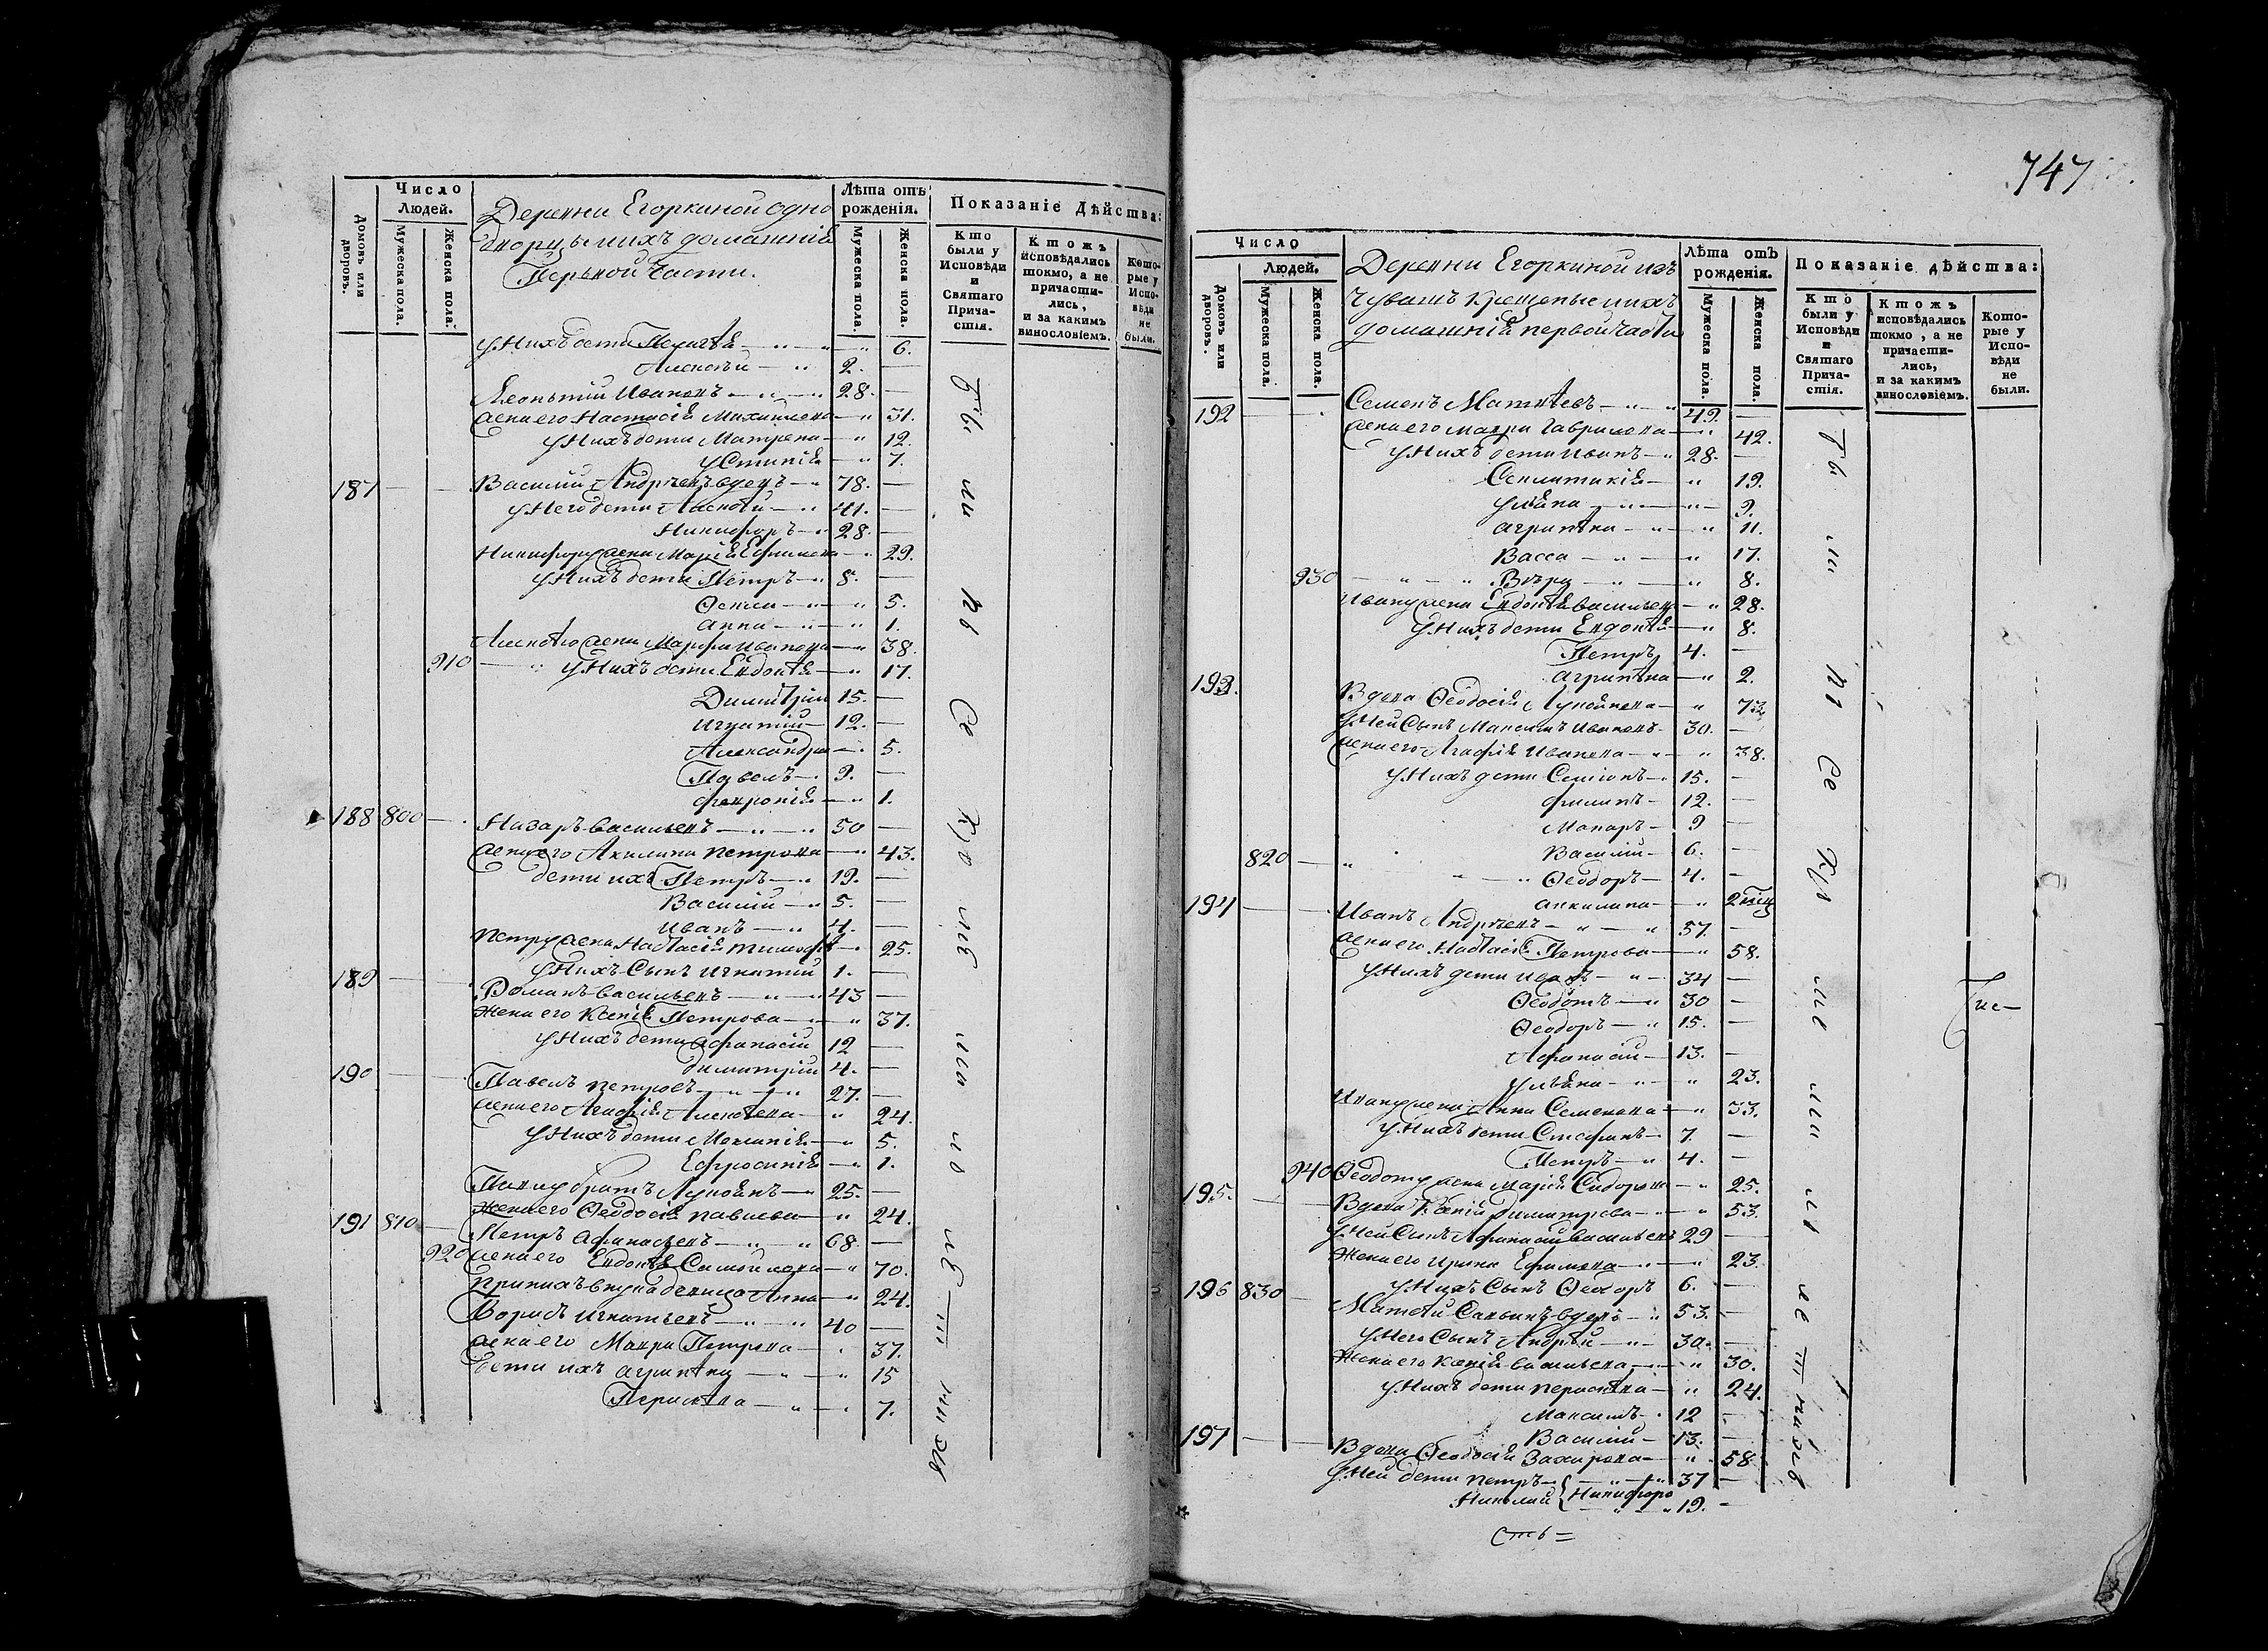 Число Людей.
Домовъ или дворовъ.
Мужеска пола.
Женска пола.
Деревни Егоркиной одно
дворцы и ихъ домашнiя
Первой части.
Лѣта отъ рожденiя.
Мужеска пола.
Женска пола.
Показанiе Дѣйства:
Кто были у Исповѣди и Святаго Причастiя.
Ктожъ исповѣдались токмо, а не причастились, и за какимъ винословiемъ.
Которые у Исповѣди не были.
у Нихъ дети Пелагѣя 6.
Алексѣй 2.
Леонтiй Ивановъ 28.
жена его Настасiя Михайлова 31.
у Нихъ дети Матрена 12.
Устинiя 7.
187 Василiй Андрѣевъ вдовъ 78.
у Него дети Алексѣй 41.
Никифоръ 28.
Никифору жена Марiя Ефимова 29.
у Нихъ дети Петръ 8.
Ѳекла 5.
Анна 1.
Алексѣю жена Марфа Иванова 38.
910 у Нихъ дети Евдокѣя 17.
Димитрiй 15.
Игнатiй 12.
Александра 5.
Павелъ 9.
Февронiя 1.
188 800 Назаръ Васильевъ 50
жена его Акилина Петрова 43.
дети ихъ Петръ 19.
Василiй 5.
Иванъ 4.
Петру жена Настасiя Тимоф 25.
у Нихъ Сынъ Игнатiй 1.
189 Романъ Васильевъ 43
Жена его Ксенiя Петрова 37.
у Нихъ дети Афанасiй 12
Димитрiй 4.
190 Павелъ Петровъ 27.
жена его Агафiя Алексѣева 24.
у Нихъ дети 5.
Ефросинiя 1.
Павлу братъ Лукоянъ 25.
Жена его Ѳеодосiя Павлова 24.
191 810 Петръ Афанасьевъ 68.
920 жена его Евдокѣя Самойлова 70.
при нихъ внука девица Анна 24.
Борисъ Игнатьевъ 40
жена его Макра Петрова 37.
дети ихъ Агрипѣна 15
7.
747
Число Людей.
Домовъ или дворовъ.
Мужеска пола.
Женска пола.
Деревни Егоркиной изъ
Чувашъ крещеные и ихъ
домашнiя первой части
Лѣта отъ рожденiя.
Мужеска пола.
Женска пола.
Показанiе дѣйства:
Кто были у Исповѣди и Святаго Причастiя.
Ктожъ исповѣдались токмо, а не причастились, и за какимъ винословiемъ.
Которые у Исповѣди не были.
192 Семенъ Матвѣевъ 49.
жена его Макра Гаврилова 42.
у Нихъ дети Иванъ 28.
19.
Ульяна 9.
Агрипѣна 11.
Васса 17.
930 Вѣра 8.
Ивану жена Евдокѣя Васильева 28.
у Нихъ дети Евдокѣя 8.
Петръ 4.
Агрипѣна 2.
193. Вдова Ѳеодосiя Лукоянова 73
у Ней Сынъ Максимъ Ивановъ 30.
жена его Агафiя Иванова 38.
у Нихъ дети Семiонъ 15.
Филипъ 12.
Макаръ 9
820 Василiй 6.
Ѳеодоръ 4.
Аккилина 2
194 Иванъ Андрѣевъ 57.
жена его Настасiя Петрова 58.
у Нихъ дети Иванъ 34
Ѳеодотъ 30
Ѳеодоръ 15.
Афанасiй 13.
Ульяна 23.
Ивану жена Анна Семенова 33.
у Нихъ дети Стефанъ 7.
Петръ 4.
940 Ѳеодоту жена Марiя Сидорова 25.
195. Вдова Ксенiя Димитрева 53.
у Ней Сынъ Афанасiй Васильевъ 29
Жена его Ирина Ефимова 23.
у Нихъ Сынъ Ѳеодоръ 6.
196 830 Матвѣй вдовъ 53.
у Него Сынъ Андрѣй 30.
Жена его Ксенiя Васильева 30.
у Нихъ дети 24.
Максимъ 12
Василiй 13.
197 Вдова Ѳеодосiя Захарова 58
у Ней дети Петръ 37
Николай Никифоро 19.